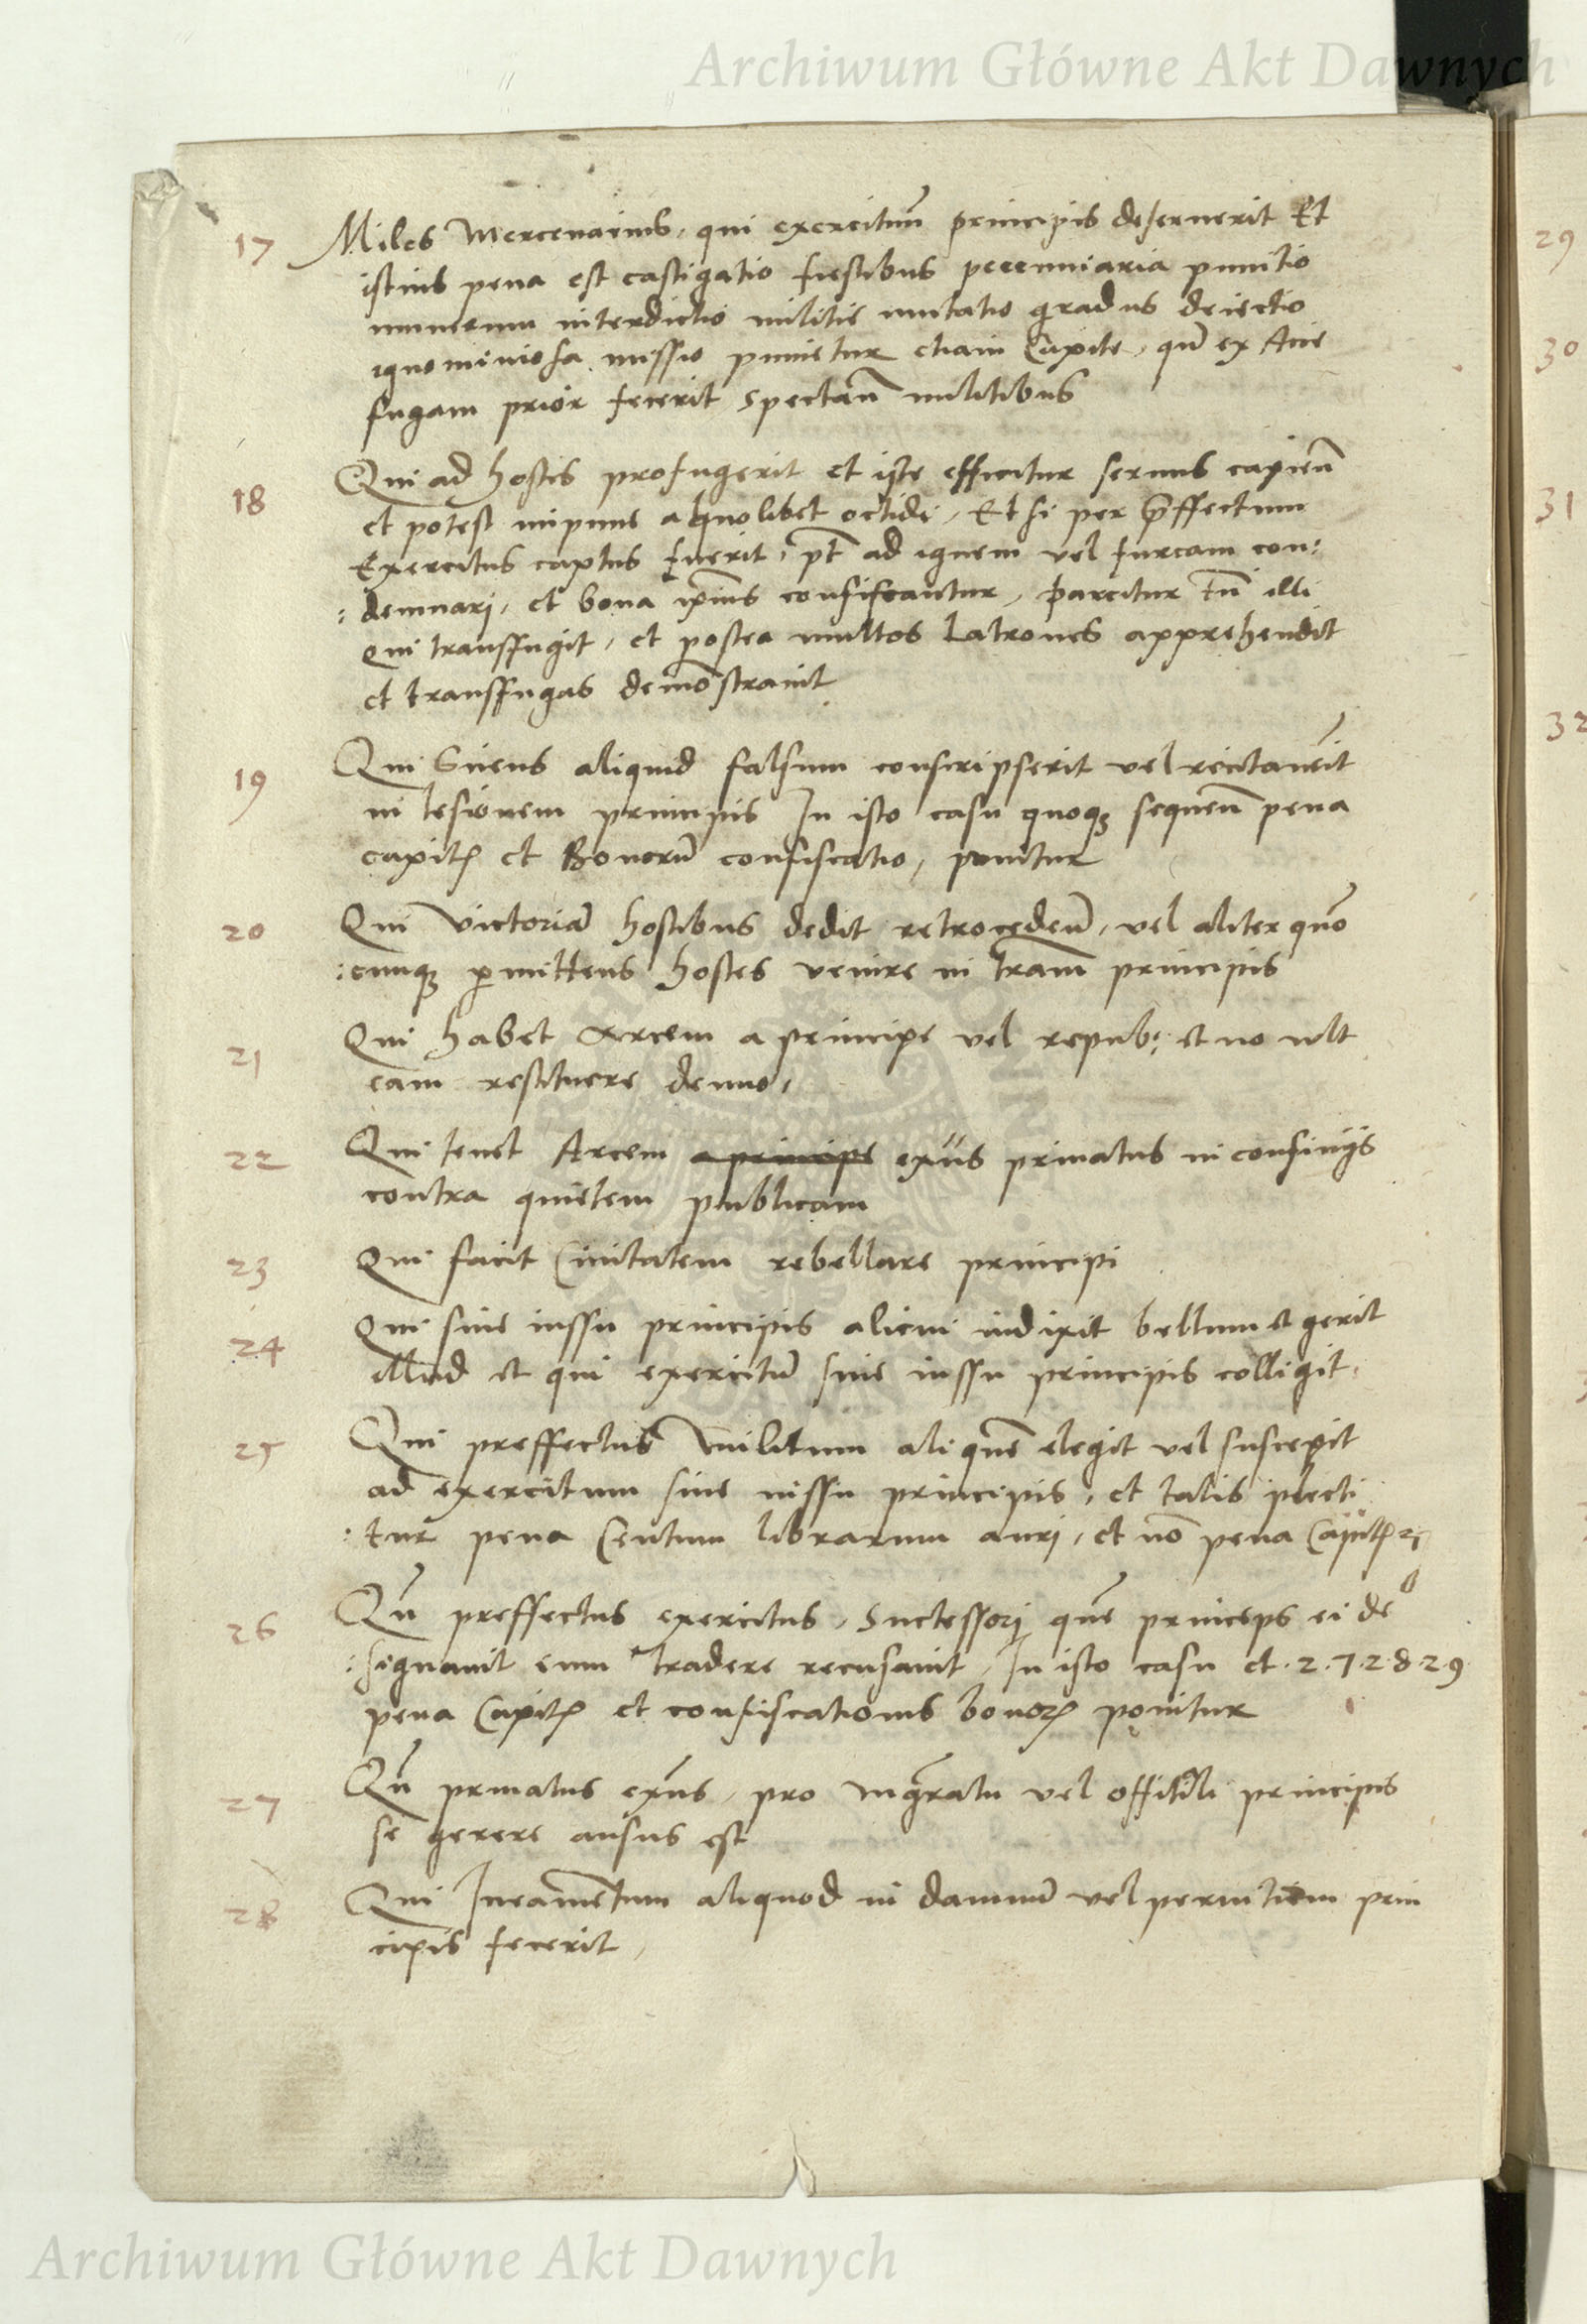 Archiwum Główne Akt Dawnych
17 Miles Mercenarius, qui exercitum̄ principis deseruerit Et
istius pena est castigatio fustibus peccuniaria punitio
munerum interdictio militie mutatio gradus deiectio
ignominiosa missio punietur etiam Capite, qui ex Acie
fugam prior fecerit spectan̄ militibus
18 Qui ad hostes profugerit et iste efficitur seruus capien̄
et potest impune a quolibet occidi, Et si per p̄ffectum
Exercitus captus fuerit, pt̄ ad ignem vel furcam con:
:demnari, et bona ip̄ius confiscantur, parcitur tn̄ illi
qui transfugit, et postea multos latrones apprehendit
et transfugas demōstrauit
19 Qui Sciens aliquid falsum conscripserit vel recitauerit
in lesionem principis In isto casu quoqꝫ sequen̄ pena
capitꝭ et Bonorū confiscatio, ponitur
20 Qui victoriā hostibus dedit retroceden̄, vel aliter quō
:cunqꝫ ꝑmittens hostes venire in tr̄am principis
21 Qui habet Arcem a principe vel repub: et no vlt
eam restituere denuo,
22 Qui tenet Arcem a principe exn̄s priuatus in confinijs
contra quietem publicam
23 Qui facit Ciuitatem rebellare principi
24 Qui sine iussu principis alicui indixit bellum et gerit
illud et qui exercitū sine iussu principis colligit,
25 Qui preffectus militum aliquē elegit vel suscepit
ad exercitum sine iussu principis, et talis plecti
:tur pena Centum librarum auri, et nō pena Capitꝭ
26 Qn̄ preffectus exercitus, Successori quē princeps ei de
:signauit eum tradere recusauit, In isto casu et .27.28.29
pena Capitꝭ et confiscationis bonorꝝ ponitur
27 Qn̄ priuatus exn̄s, pro mgr̄atu vel officiali principis
se gerere ausus est
28 Qui Incamentum aliquod in damnū vel pernitiem prin
cipis fecerit,
29
30
31
32
Archiwum Główne Akt Dawnych